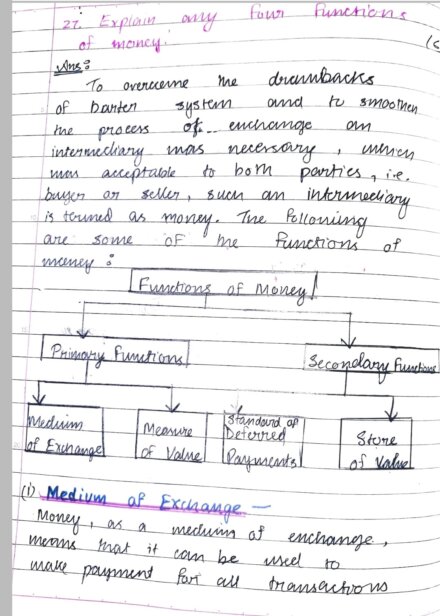 27. Explain any four functions
of money.
Ans:
To overcome the drawbacks
of barter system and to smoothen
the process of enchange an
intermediary was necessary, which
was acceptable to both parties, i.e.
buyer or seller, such an intermediary
is termed as money. The following
are some of the functions of
money :
Functions of Money
Primary Functions
Secondary Functions
Medium
of Exchange
Measure
of Value
Standard of
Deferred
Payments
Store
of Value
(i) Medium of Exchange —
Money, as a medium of enchange,
means that it can be used to
make payment for all transactions